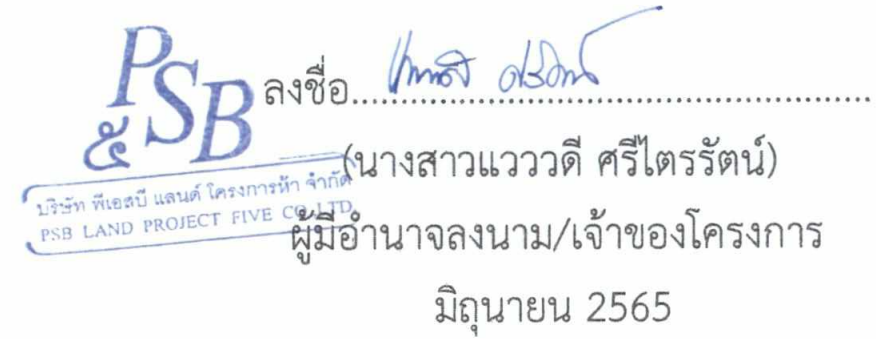 PSB
๕
บริษัท พีเอสบี แลนด์ โครงการห้า จำกัด
PSB LAND PROJECT FIVE CO.,LTD.
ลงชื่อ
(นางสาวแวววดี ศรีไตรรัตน์)
ผู้มีอำนาจลงนาม/เจ้าของโครงการ
มิถุนายน 2565